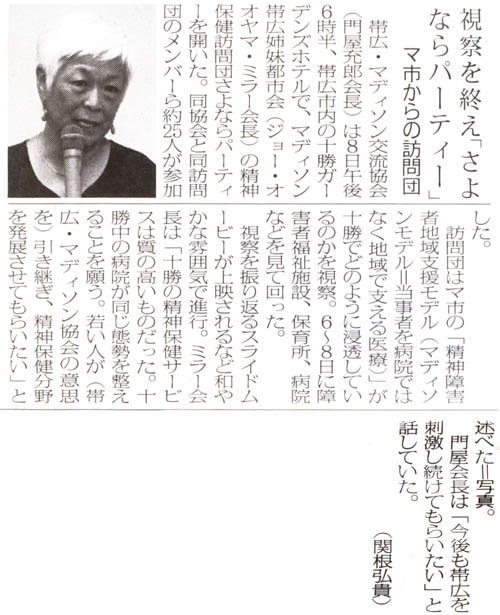 視察を終え「さよ
ならパーティー」
マ市からの訪問団
帯広・マディソン交流協会
（門屋充郎会長）は８日午後
６時半、帯広市内の十勝ガー
デンズホテルで、マディソン
帯広姉妹都市会（ジョー・オ
オヤマ・ミラー会長）の精神
保健訪問団さよならパーティ
ーを開いた。同協会と同訪問
団のメンバーら約25人が参加
した。
訪問団はマ市の「精神障害
者地域支援モデル（マディソ
ンモデル＝当事者を病院では
なく地域で支える医療）」が
十勝でどのように浸透してい
るのかを視察。６～８日に障
害者福祉施設、保育所、病院
などを見て回った。
視察を振り返るスライドム
ービーが上映されるなど和や
かな雰囲気で進行。ミラー会
長は「十勝の精神保健サービ
スは質の高いものだった。十
勝中の病院が同じ態勢を整え
ることを願う。若い人が（帯
広・マディソン協会の意思
を）引き継ぎ、精神保健分野
を発展させてもらいたい」と
述べた＝写真。
門屋会長は「今後も帯広を
刺激し続けてもらいたい」と
話していた。
（関根弘貴）